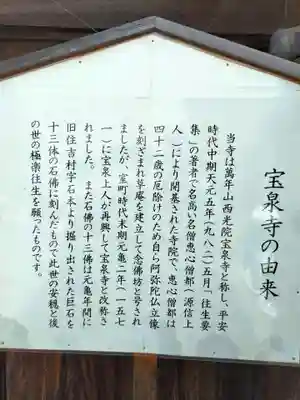 宝泉寺の由来
当寺は萬年山西光院宝泉寺と称し、平安
時代中期天元五年(九八二)五月「往生要
集」の著者で名高い名僧恵心僧都(源信上
人)により開基された寺院で、恵心僧都は
四十二歳の厄除けのため自ら阿弥陀仏立像
を刻まれ草庵を建立して念佛坊と号され
ましたが、室町時代末期元亀二年(一五七
一)に宝泉上人が再興して宝泉寺と改称さ
れました。また石佛の十三佛は元亀年間に
旧住吉村字石本より掘り出された巨石を
十三体の石佛に刻んだもので此世の安穏と後
の世の極楽往生を願ったものです。